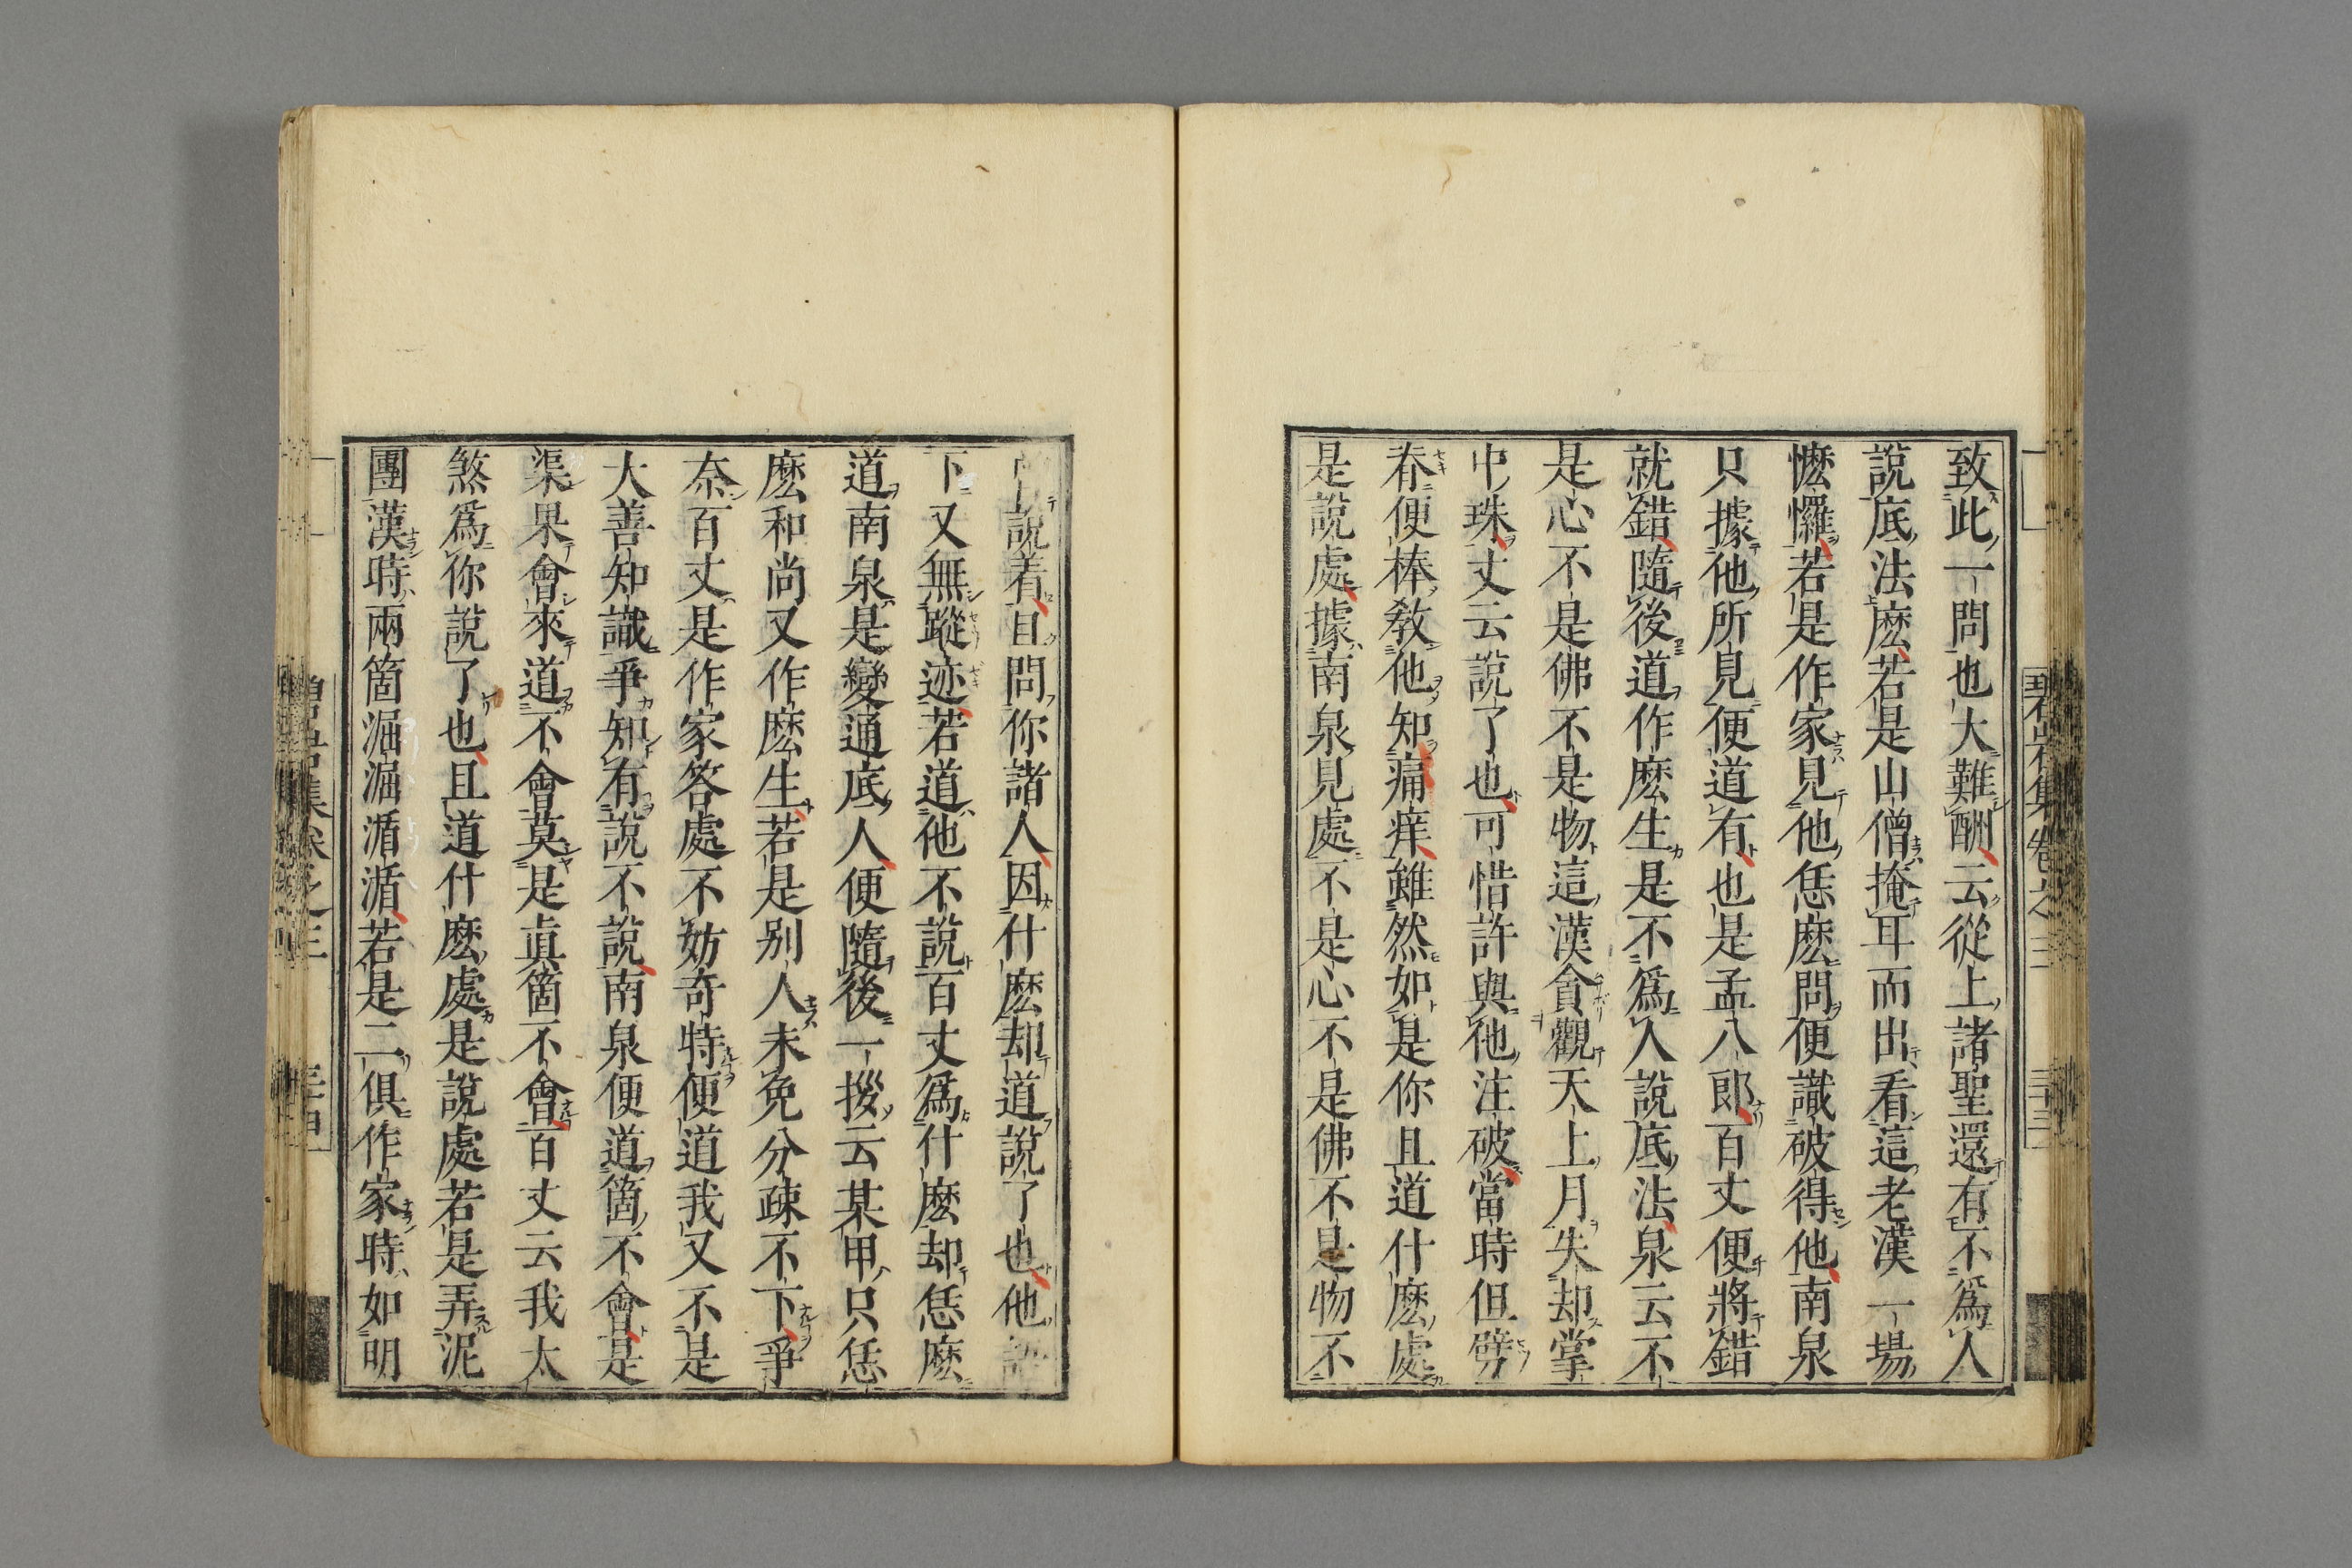 致此一問也大難酬云從上諸聖還有不爲人
說底法麽若是山僧掩耳而出看這老漢一場
㦬㦬若是作家見他恁麽問便識破得他南泉
只據他所見便道有也是孟八郎百丈便將錯
就錯隨後道作麽生是不爲人說底法泉云不
是心不是佛不是物這漢貪觀天上月失却掌
中珠丈云說了也可惜許與他注破當時但劈
脊便棒教他知痛痒雖然如是你且道什麽處
是說處據南泉見處不是心不是佛不是物不
說着且問你諸人因什麽却道說了也他
下又無蹤迹若道他不說百丈爲什麽却恁麽
道南泉是變通底人便隨後一拶云某甲只恁
麽和尚又作麽生若是別人未免分疎不下爭
奈百丈是作家答處不妨奇特便道我又不是
大善知識爭知有說不說南泉便道箇不會是
渠果會來道不會莫是眞箇不會百丈云我太
煞爲你說了也且道什麽處是說處若是弄泥
團漢時兩箇漏漏逗逗若是二俱作家時如明
碧岩集卷之三 三十三
碧岩集卷之三